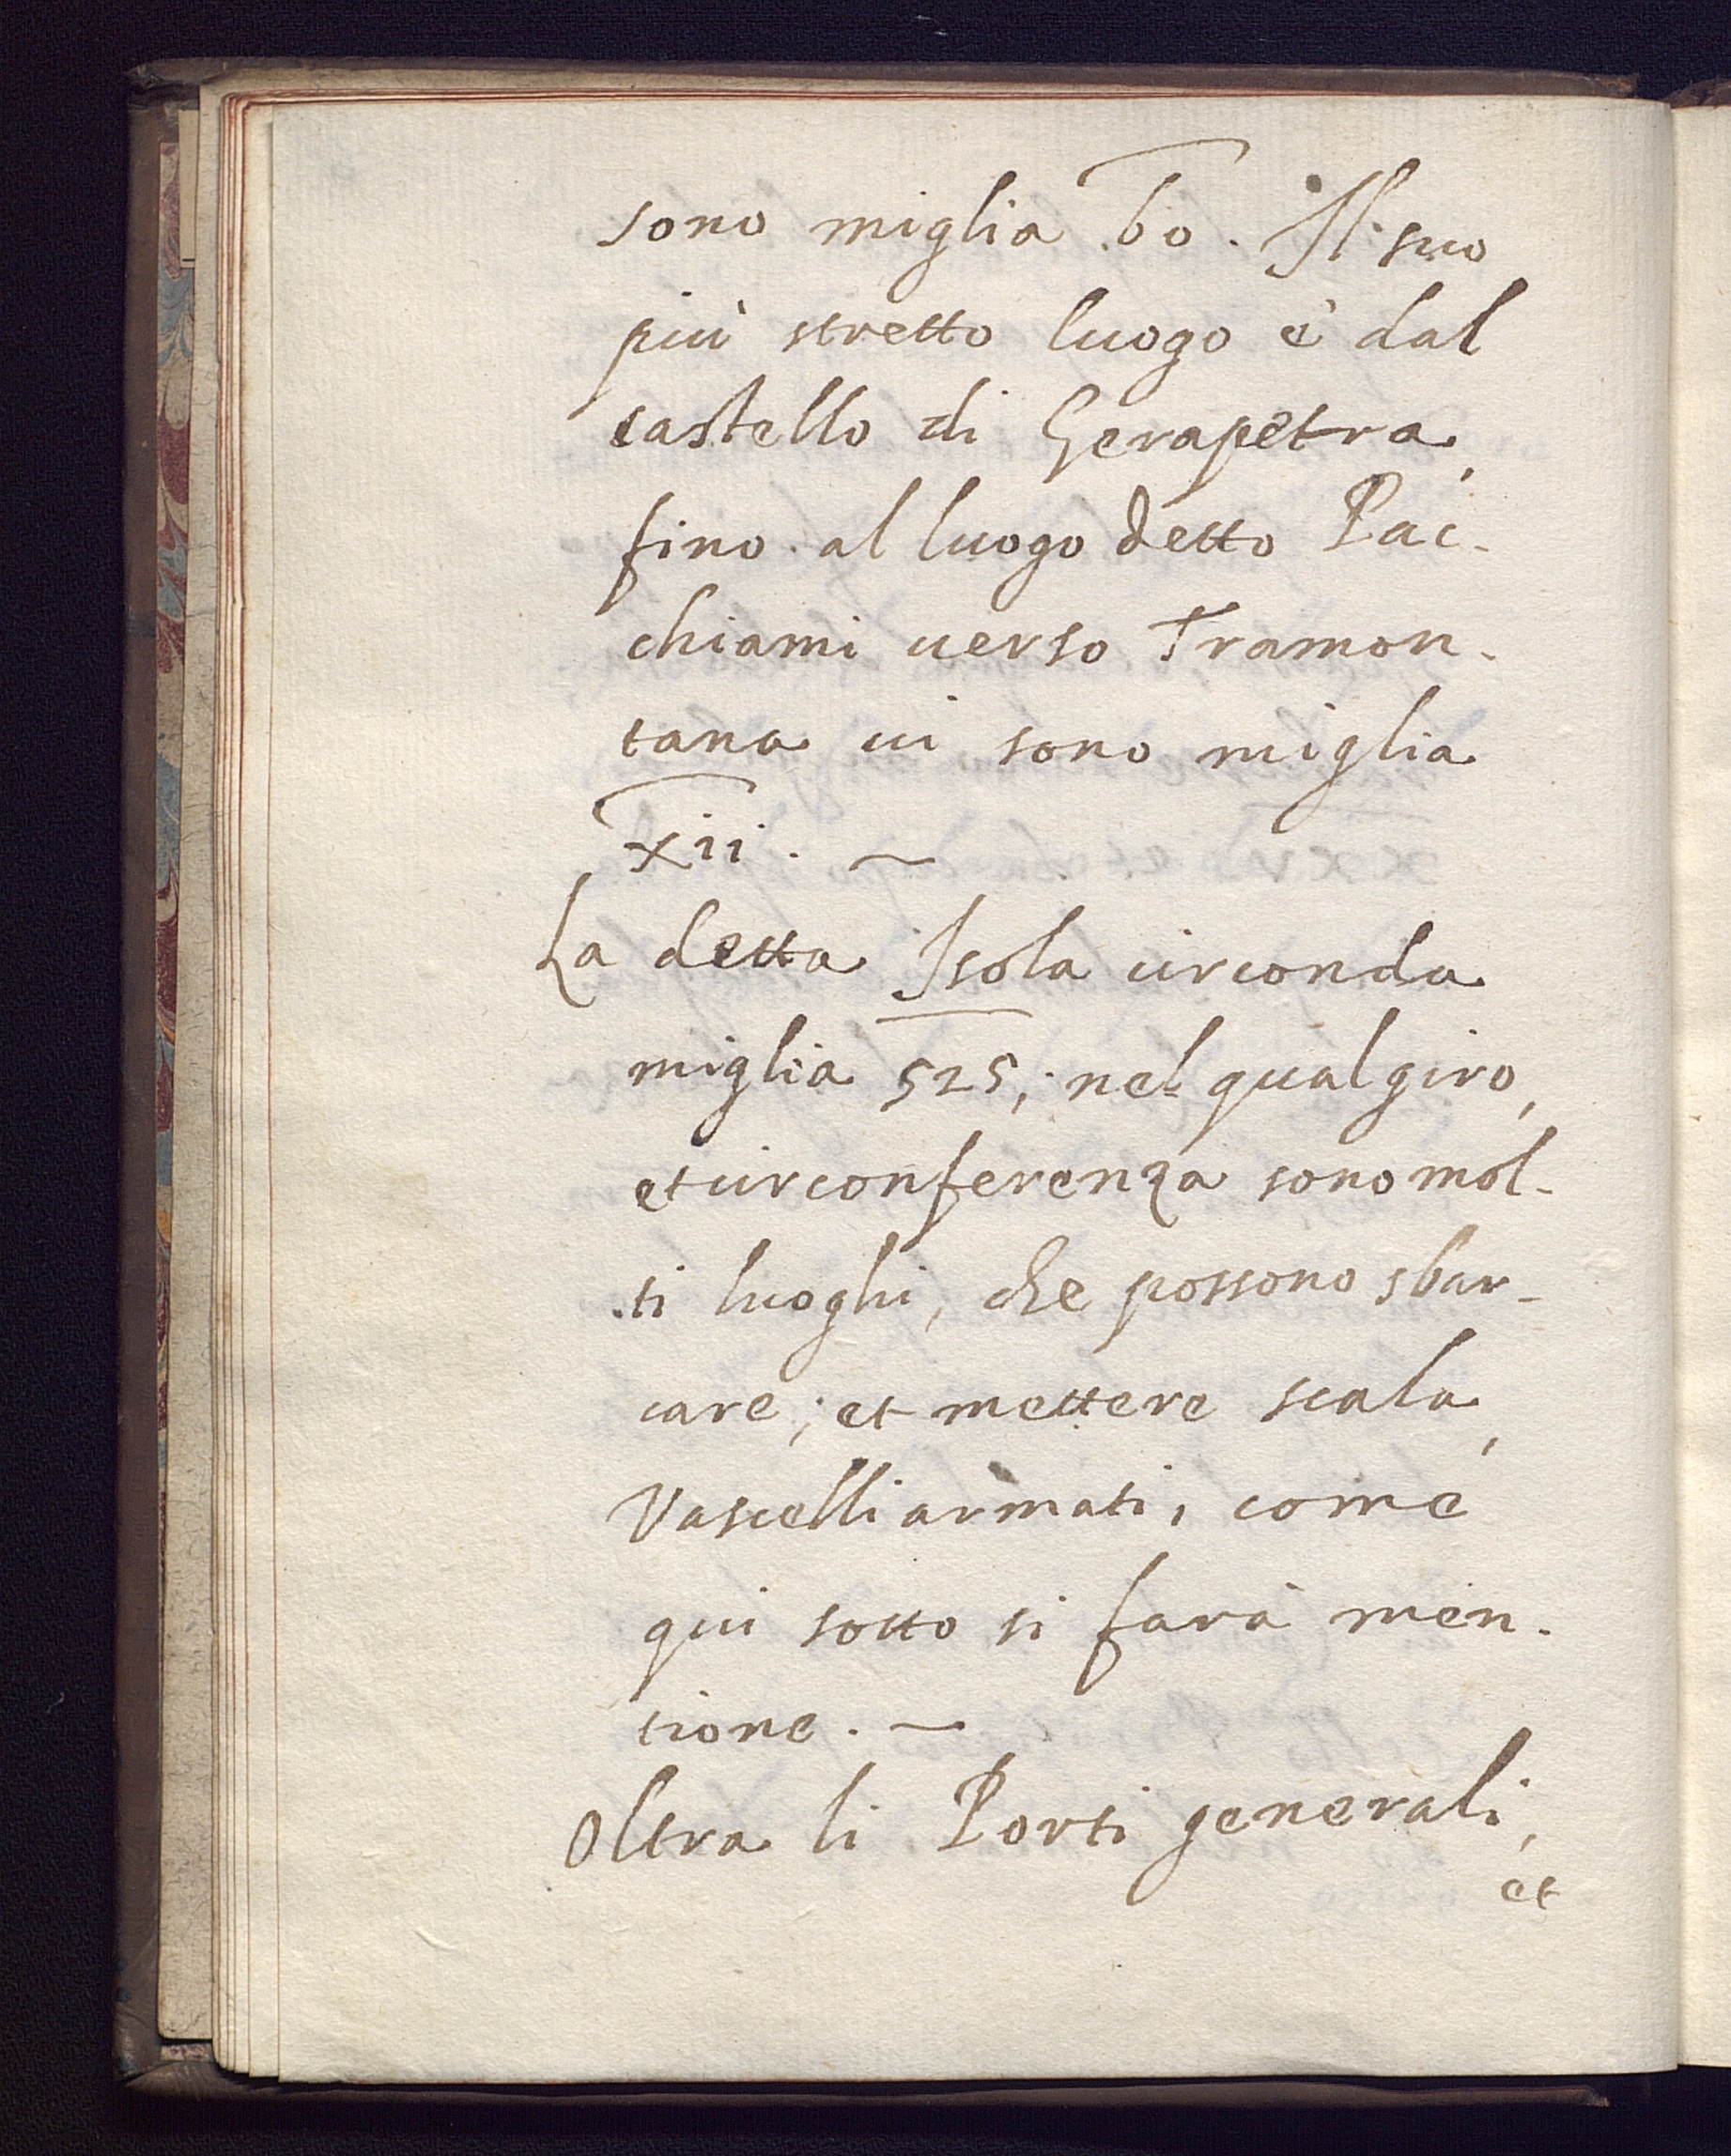 sono miglia 60. Il suo
più stretto luogo è dal
castello di Gerapetra,
fino al luogo detto Pac-
chiami uerso Tramon-
tana ui sono miglia
xii. ~
La detta Isola circonda
miglia 525; nel qual giro,
et circonferenza sono mol-
ti luoghi, che possono sbar-
care; et mettere scala,
Vascelli armati, come
qui sotto si farà men-
tione. ~
Oltra li Porti generali,
et